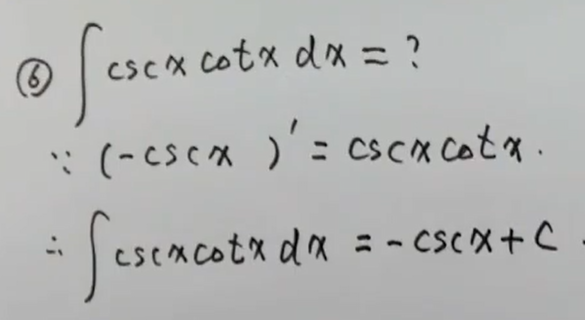 ⑥ ∫ cscx cotx dx = ?
∵ (-cscx )' = cscx cotx.
∴ ∫ cscx cotx dx = -cscx + C.